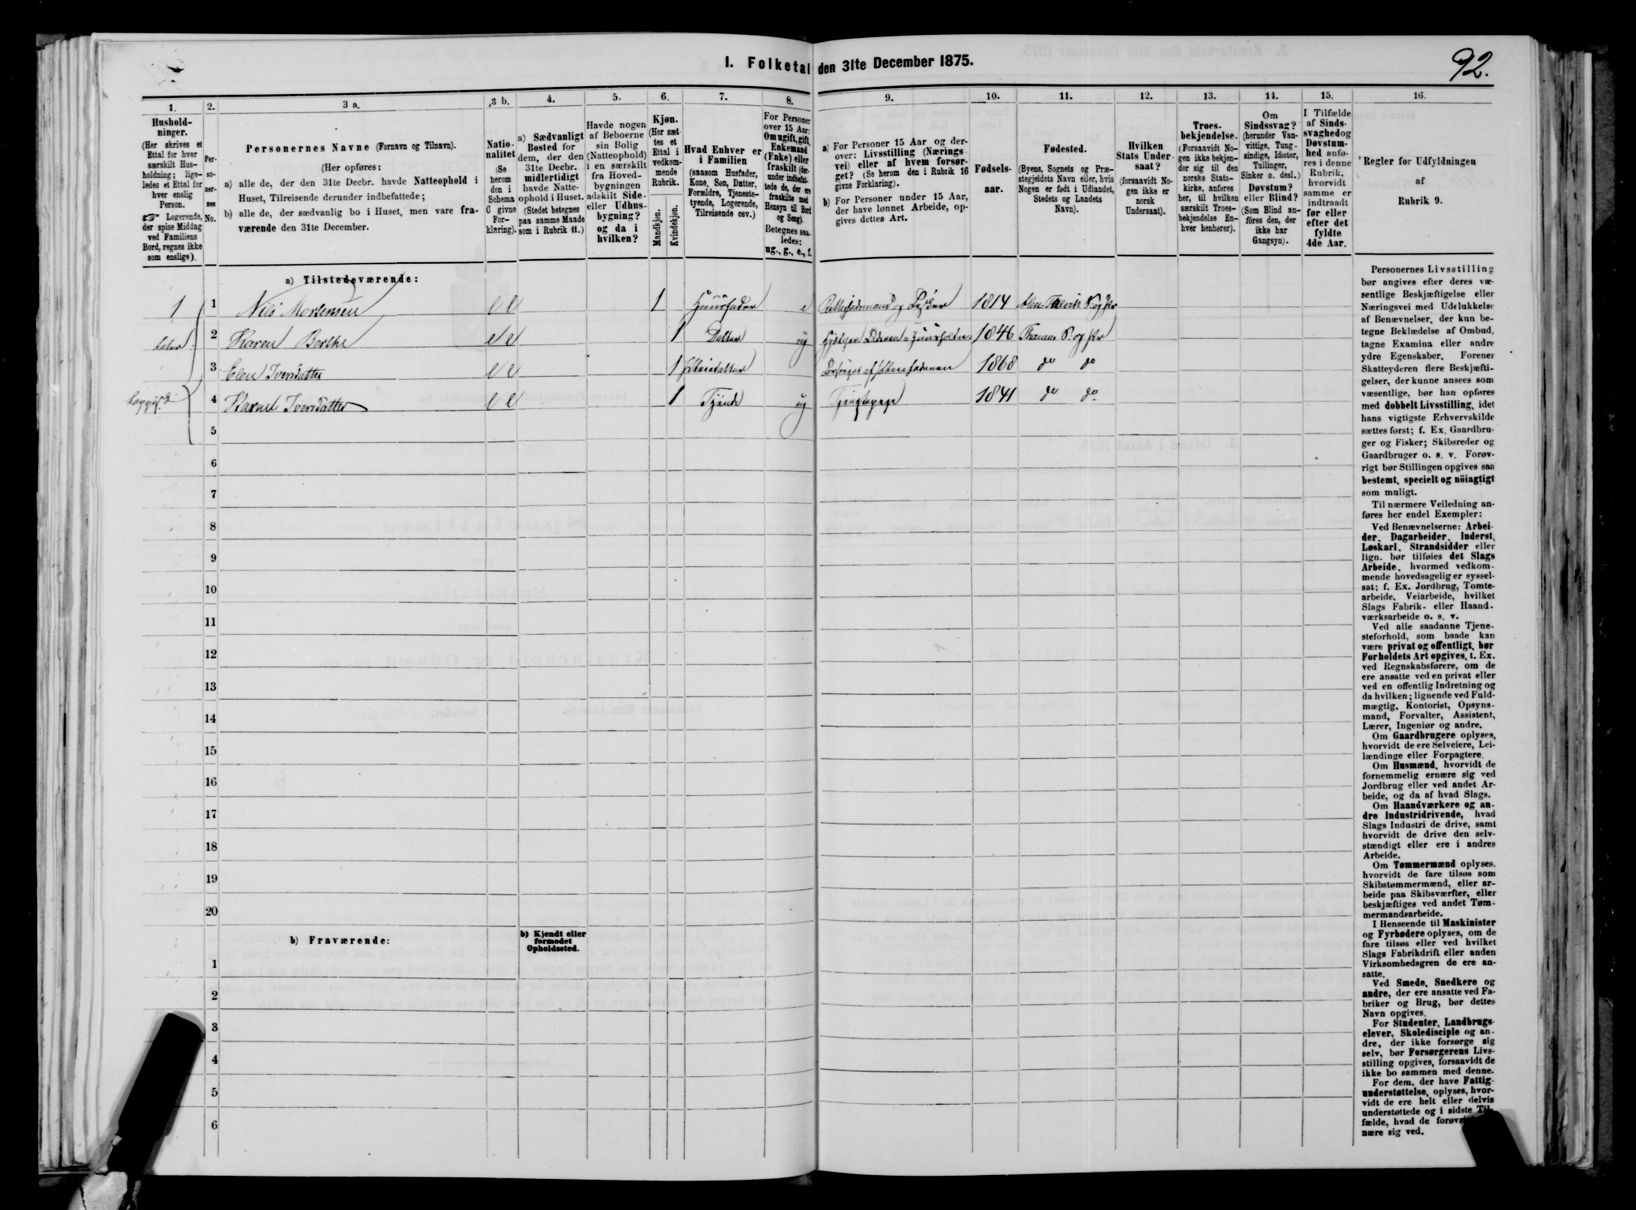 92.
I. Folketal den 31te December 1875.
1.
Hushold-
ninger.
(Her skrives et
Ettal for hver
særskilt Hus-
holdning; lige-
ledes et Ettal for
hver enslig
Person.
☞ Logerende,
der spise Middag
ved Familiens
Bord, regnes ikke
som enslige).
2.
Per-
so-
ner-
nes
No.
3 a.
Personernes Navne (Fornavn og Tilnavn).
(Her opføres:
a) alle de, der den 31te Decbr. havde Natteophold i
Huset, Tilreisende derunder indbefattede;
b) alle de, der sædvanlig bo i Huset, men vare fra-
værende den 31te December.
3 b.
Natio-
nalitet
(Se
herom
den i
Schema
C givne
For-
klaring).
4.
a) Sædvanligt
Bosted for
dem, der den
31te Decbr.
midlertidigt
havde Natte-
ophold i Huset.
(Stedet betegnes
paa samme Maade
som i Rubrik 11.)
5.
Havde nogen
af Beboerne
sin Bolig
(Natteophold)
i en særskilt
fra Hoved-
bygningen
adskilt Side-
eller Udhus-
bygning?
og da i
hvilken?
6.
Kjøn.
(Her sæt-
tes et
Ettal i
vedkom-
mende
Rubrik.
Mandkjøn.
Kvindekjøn.
7.
Hvad Enhver er
i Familien
(saasom Husfader,
Kone, Søn, Datter,
Forældre, Tjeneste-
tyende, Logerende,
Tilreisende osv.)
8.
For Personer
over 15 Aar:
Om ugift, gift,
Enkemand
(Enke) eller
fraskilt (der-
under indbefat-
tede de, der ere
fraskilte med
Hensyn til Bord
og Seng).
Betegnes saa-
ledes:
ug., g., e., f.
9.
a) For Personer 15 Aar og der-
over: Livsstilling (Nærings-
vei) eller af hvem forsør-
get? (Se herom den i Rubrik 16
givne Forklaring).
b) For Personer under 15 Aar,
der have lønnet Arbeide, op-
gives dettes Art.
10.
Fødsels-
aar.
11.
Fødested.
(Byens, Sognets og Præ-
stegjeldets Navn eller, hvis
Nogen er født i Udlandet,
Stedets og Landets
Navn).
12.
Hvilken
Stats Under-
saat?
(forsaavidt No-
gen ikke er
norsk
Undersaat).
13.
Troes-
bekjendelse.
(Forsaavidt No-
gen ikke bekjen-
der sig til den
norske Stats-
kirke, anføres
her, til hvilken
særskilt Troes-
bekjendelse En-
hver henhører).
14.
Om
Sindssvag?
(herunder Van-
vittige, Tung-
sindige, Idioter,
Tullinger,
Sinker o. desl.)
Døvstum?
eller Blind?
(Som Blind an-
føres den, der
ikke har
Gangsyn).
15.
I Tilfælde
af Sinds-
svaghed og
Døvstum-
hed anfø-
res i denne
Rubrik,
hvorvidt
samme er
indtraadt
før eller
efter det
fyldte
4de Aar.
16.
Regler for Udfyldningen
af
Rubrik 9.
a) Tilstedeværende:
1 1 Nils Mortensen 1 Huusfader e 1814
2 Karen Berthe 1 Datter ug 1846
3 Elen Iversdatter 1 1868 do do
4 Karnel Iversdatter 1 Tjende ug Tjenestepige 1841 do do
5
6
7
8
9
10
11
12
13
14
15
16
17
18
19
20
b) Fraværende:
b) Kjendt eller
formodet
Opholdssted.
1
2
3
4
5
6
Personernes Livsstilling
bør angives efter deres væ-
sentlige Beskjæftigelse eller
Næringsvei med Udelukkelse
af Benævnelser, der kun be-
tegne Beklædelse af Ombud,
tagne Examina eller andre
ydre Egenskaber. Forener
Skatteyderen flere Beskjæfti-
gelser, der kunne ansees som
væsentlige, bør han opføres
med dobbelt Livsstilling, idet
hans vigtigste Erhvervskilde
sættes først; f. Ex. Gaardbru-
ger og Fisker; Skibsreder og
Gaardbruger o. s. v. Forøv-
rigt bør Stillingen opgives saa
bestemt, specielt og nöiagtigt
som muligt.
Til nærmere Veiledning an-
føres her endel Exempler:
Ved Benævnelserne: Arbei-
der, Dagarbeider, Inderst,
Løskarl, Strandsidder eller
lign. bør tilføies det Slags
Arbeide, hvormed vedkom-
mende hovedsagelig er syssel-
sat; f. Ex. Jordbrug, Tomte-
arbeide, Veiarbeide, hvilket
Slags Fabrik- eller Haand-
værksarbeide o. s. v.
Ved alle saadanne Tjene-
steforhold, som baade kan
være privat og offentligt, bør
Forholdets Art opgives, t. Ex.
ved Regnskabsførere, om de
ere ansatte ved en privat eller
ved en offentlig Indretning og
da hvilken; lignende ved Fuld-
mægtig, Kontorist, Opsyns-
mand, Forvalter, Assistent,
Lærer, Ingeniør og andre.
Om Gaardbrugere oplyses,
hvorvidt de ere Selveiere, Lei-
lændinge eller Forpagtere.
Om Husmænd, hvorvidt de
fornemmelig ernære sig ved
Jordbrug eller ved andet Ar-
beide, og da af hvad Slags.
Om Haandværkere og an-
dre Industridrivende, hvad
Slags Industri de drive, samt
hvorvidt de drive den selv-
stændigt eller ere i andres
Arbeide.
Om Tømmermænd oplyses,
hvorvidt de fare tilsøs som
Skibstømmermænd, eller ar-
beide paa Skibsværfter, eller
beskjæftiges ved andet Tøm-
mermandsarbeide.
I Henseende til Maskinister
og Fyrbødere oplyses, om de
fare tilsøs eller ved hvilket
Slags Fabrikdrift eller anden
Virksomhedsgren de ere an-
satte.
Ved Smede, Snedkere og
andre, der ere ansatte ved Fa-
briker og Brug, bør dettes
Navn opgives.
For Studenter, Landbrugs-
elever, Skoledisciple og an-
dre, der ikke forsørge sig
selv, bør Forsørgerens Livs-
stilling opgives, forsaavidt de
ikke bo sammen med denne.
For dem, der have Fattig-
understøttelse, oplyses, hvor-
vidt de ere helt eller delvis
understøttede og i sidste Til-
fælde, hvad de forøv
nære sig ved.